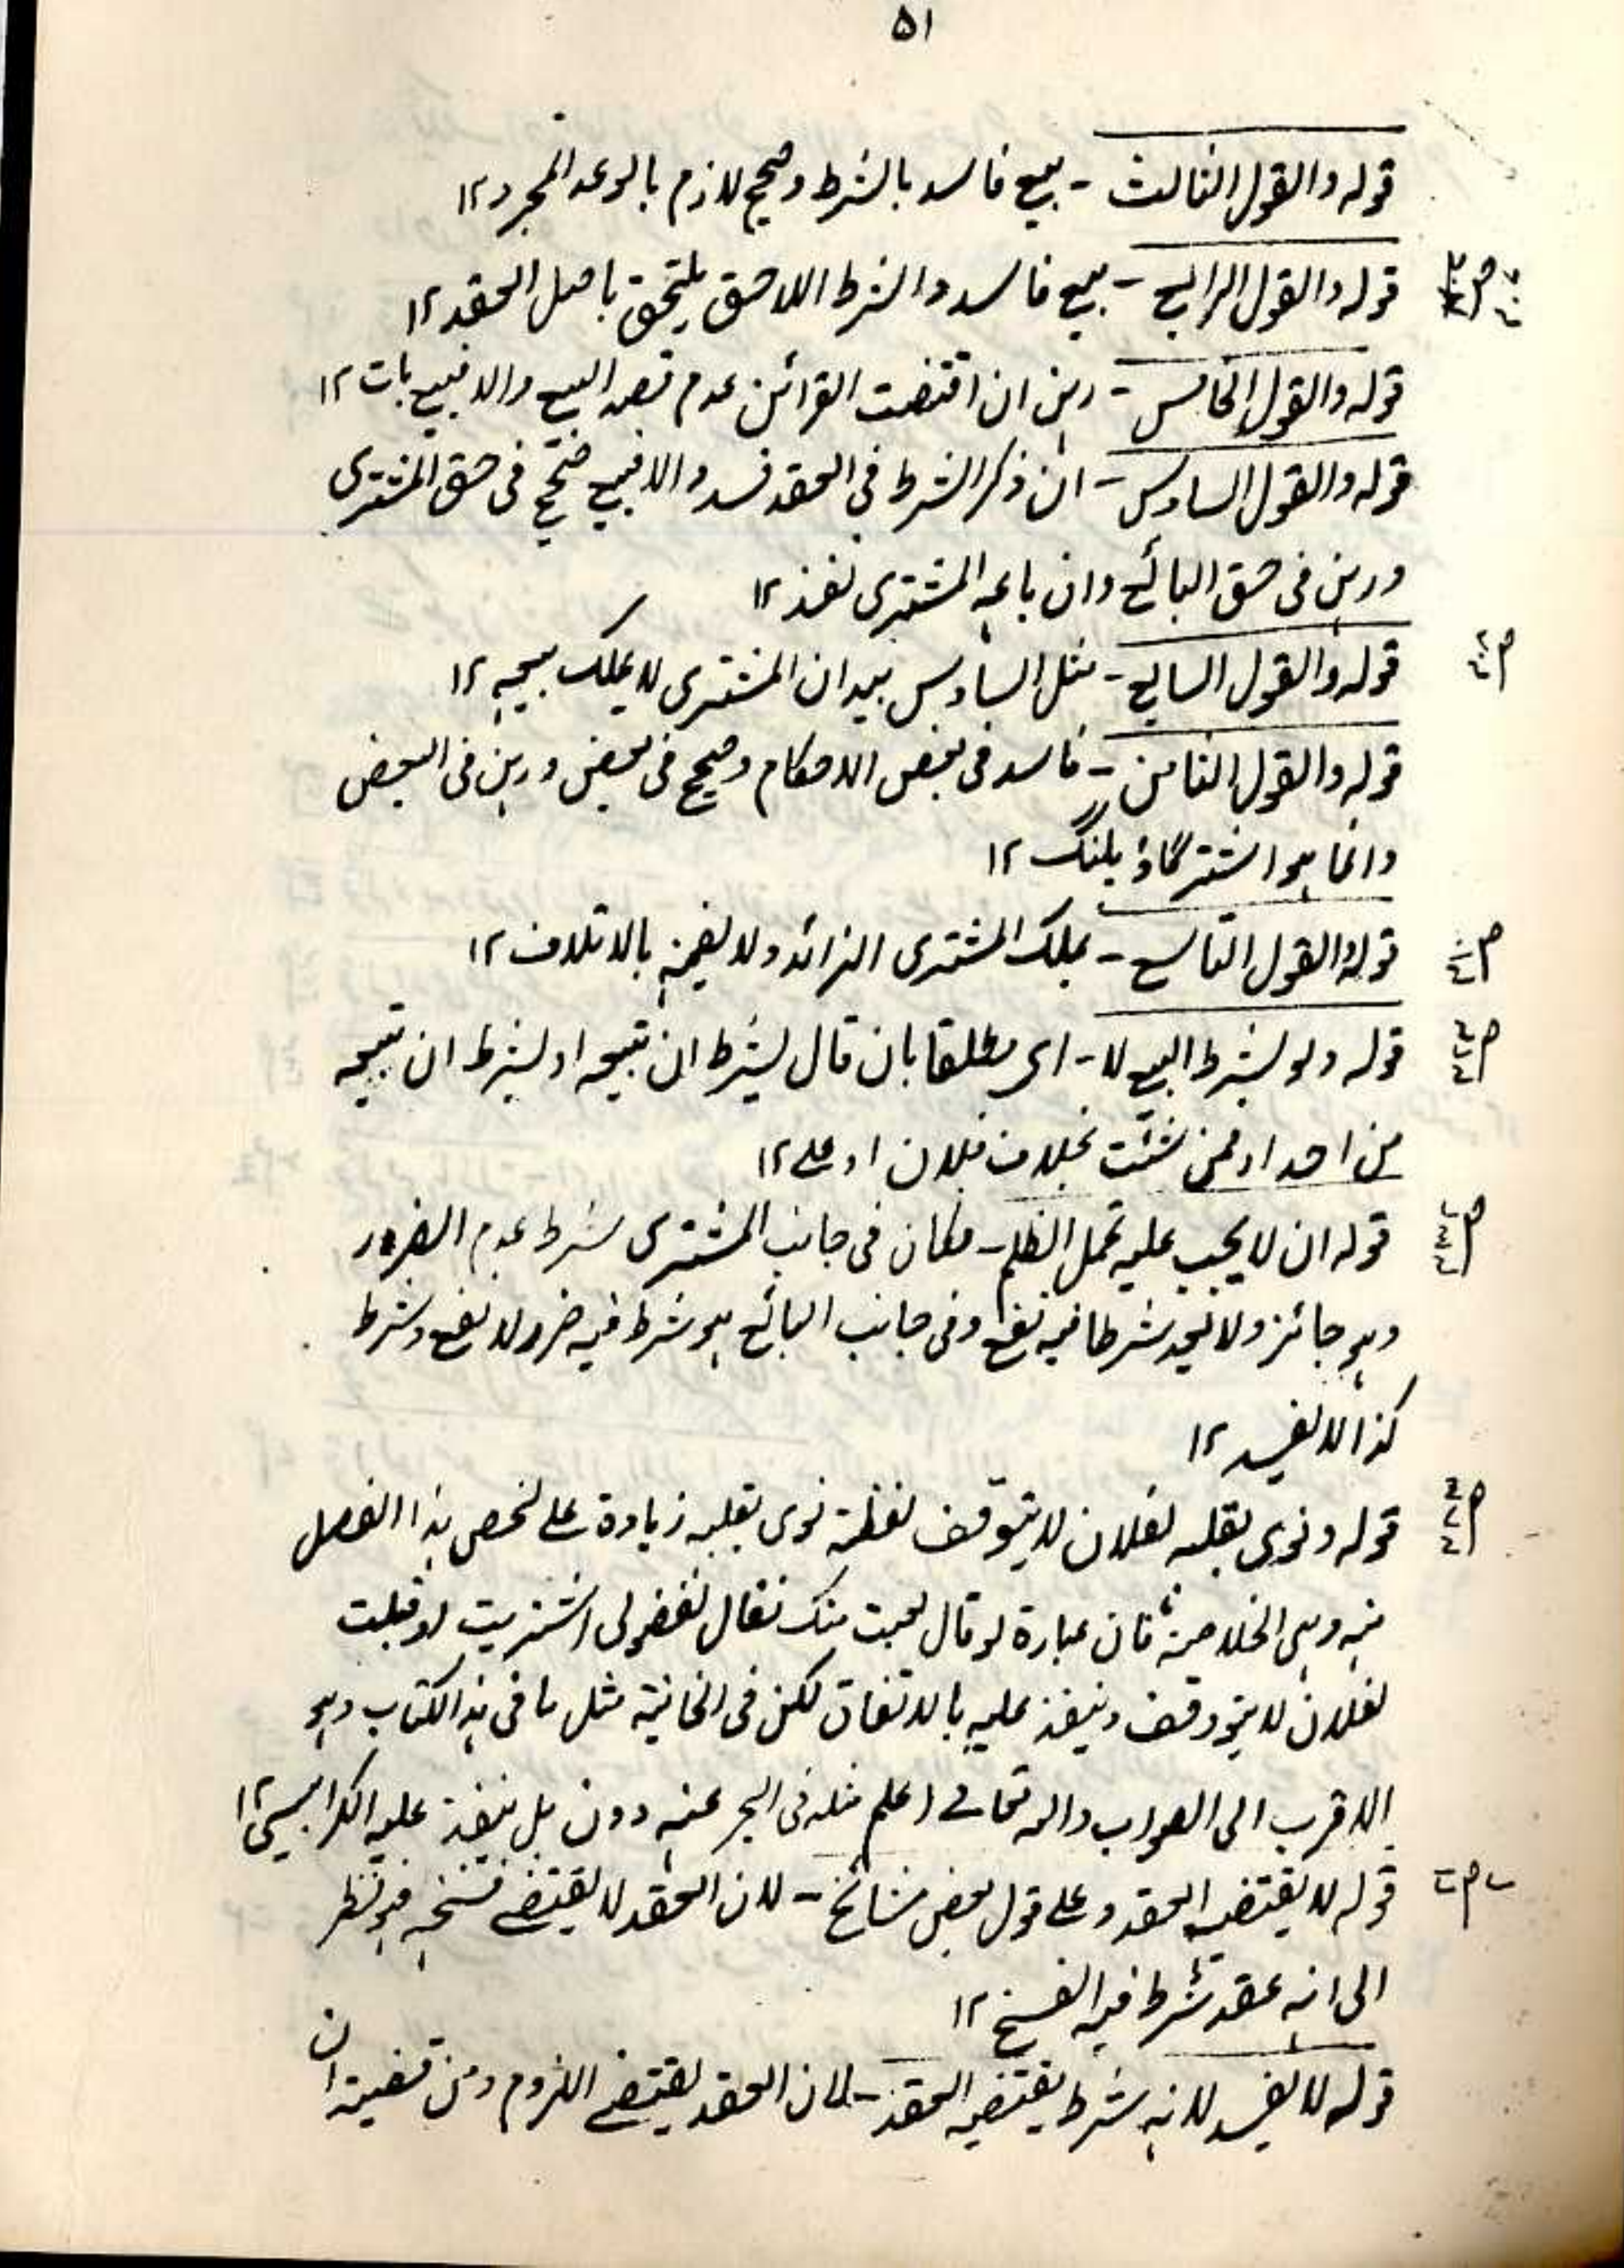 ٥١
قوله والقول الثالث - بيع فاسد بالشرط وصحيح لازم بالوعد المجرد ١٢
قوله والقول الرابع - بيع فاسد والشرط اللاحق يلتحق باصل العقد ١٢
قوله والقول الخامس - رهن ان اقتضت القرائن عدم قصد البيع والا فبيع بات ١٢
قوله والقول السادس - ان ذكر الشرط فى العقد فسد والا فبيع صحيح فى حق المشترى
ورهن فى حق البائع وان باعه المشترى نفذ ١٢
قوله والقول السابع - مثل السادس بيد ان المشترى لا يملك بيعه ١٢
قوله والقول الثامن - فاسد فى بعض الاحكام وصحيح فى بعض ورهن فى البعض
وانما هو اشتر گاؤ پلنگ ١٢
قوله والقول التاسع - يملك المشترى الزائد ولا يضمنه بالاتلاف ١٢
قوله ولو بشرط البيع لا - اى مطلقا بان قال بشرط ان تبيعه او بشرط ان تبيعه
من احد او ممن شئت بخلاف فلان او على ١٢
قوله ان لا يجب عليه تحمل الظلم - فكان فى جانب المشترى شرط عدم الضرر
وهو جائز ولا يعد شرطا فيه نفع وفى جانب البائع هو شرط فيه ضرر لا نفع وشرط
كذا لا يفسد ١٢
قوله ونوى بقلبه لفلان لا يتوقف لفظة نوى بقلبه زيادة على نص هذا الفصل
منه وهى الخلاصة فان عبارة لو قال بعت منك فقال لفضولى اشتريت او قبلت
لفلان لا يتوقف وينفذ عليه بالاتفاق لكن فى الخانية مثل ما فى هذا الكتاب وهو
الاقرب الى الصواب والله تعالے اعلم مثله فى البحر عنه دون بل ينفذ عليه الكرابيسى ١٢
قوله لا يقتضيه العقد وعلى قول بعض مشائخ - لان العقد لا يقتضے فسخه فهو نظر
الى انه عقد شرط فيه الفسخ ١٢
قوله لا يفسد لانه شرط يقتضيه العقد - لان العقد يقتضے اللزوم ومن قضيته ان